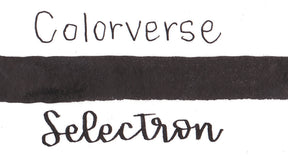 Colorverse
Selectron